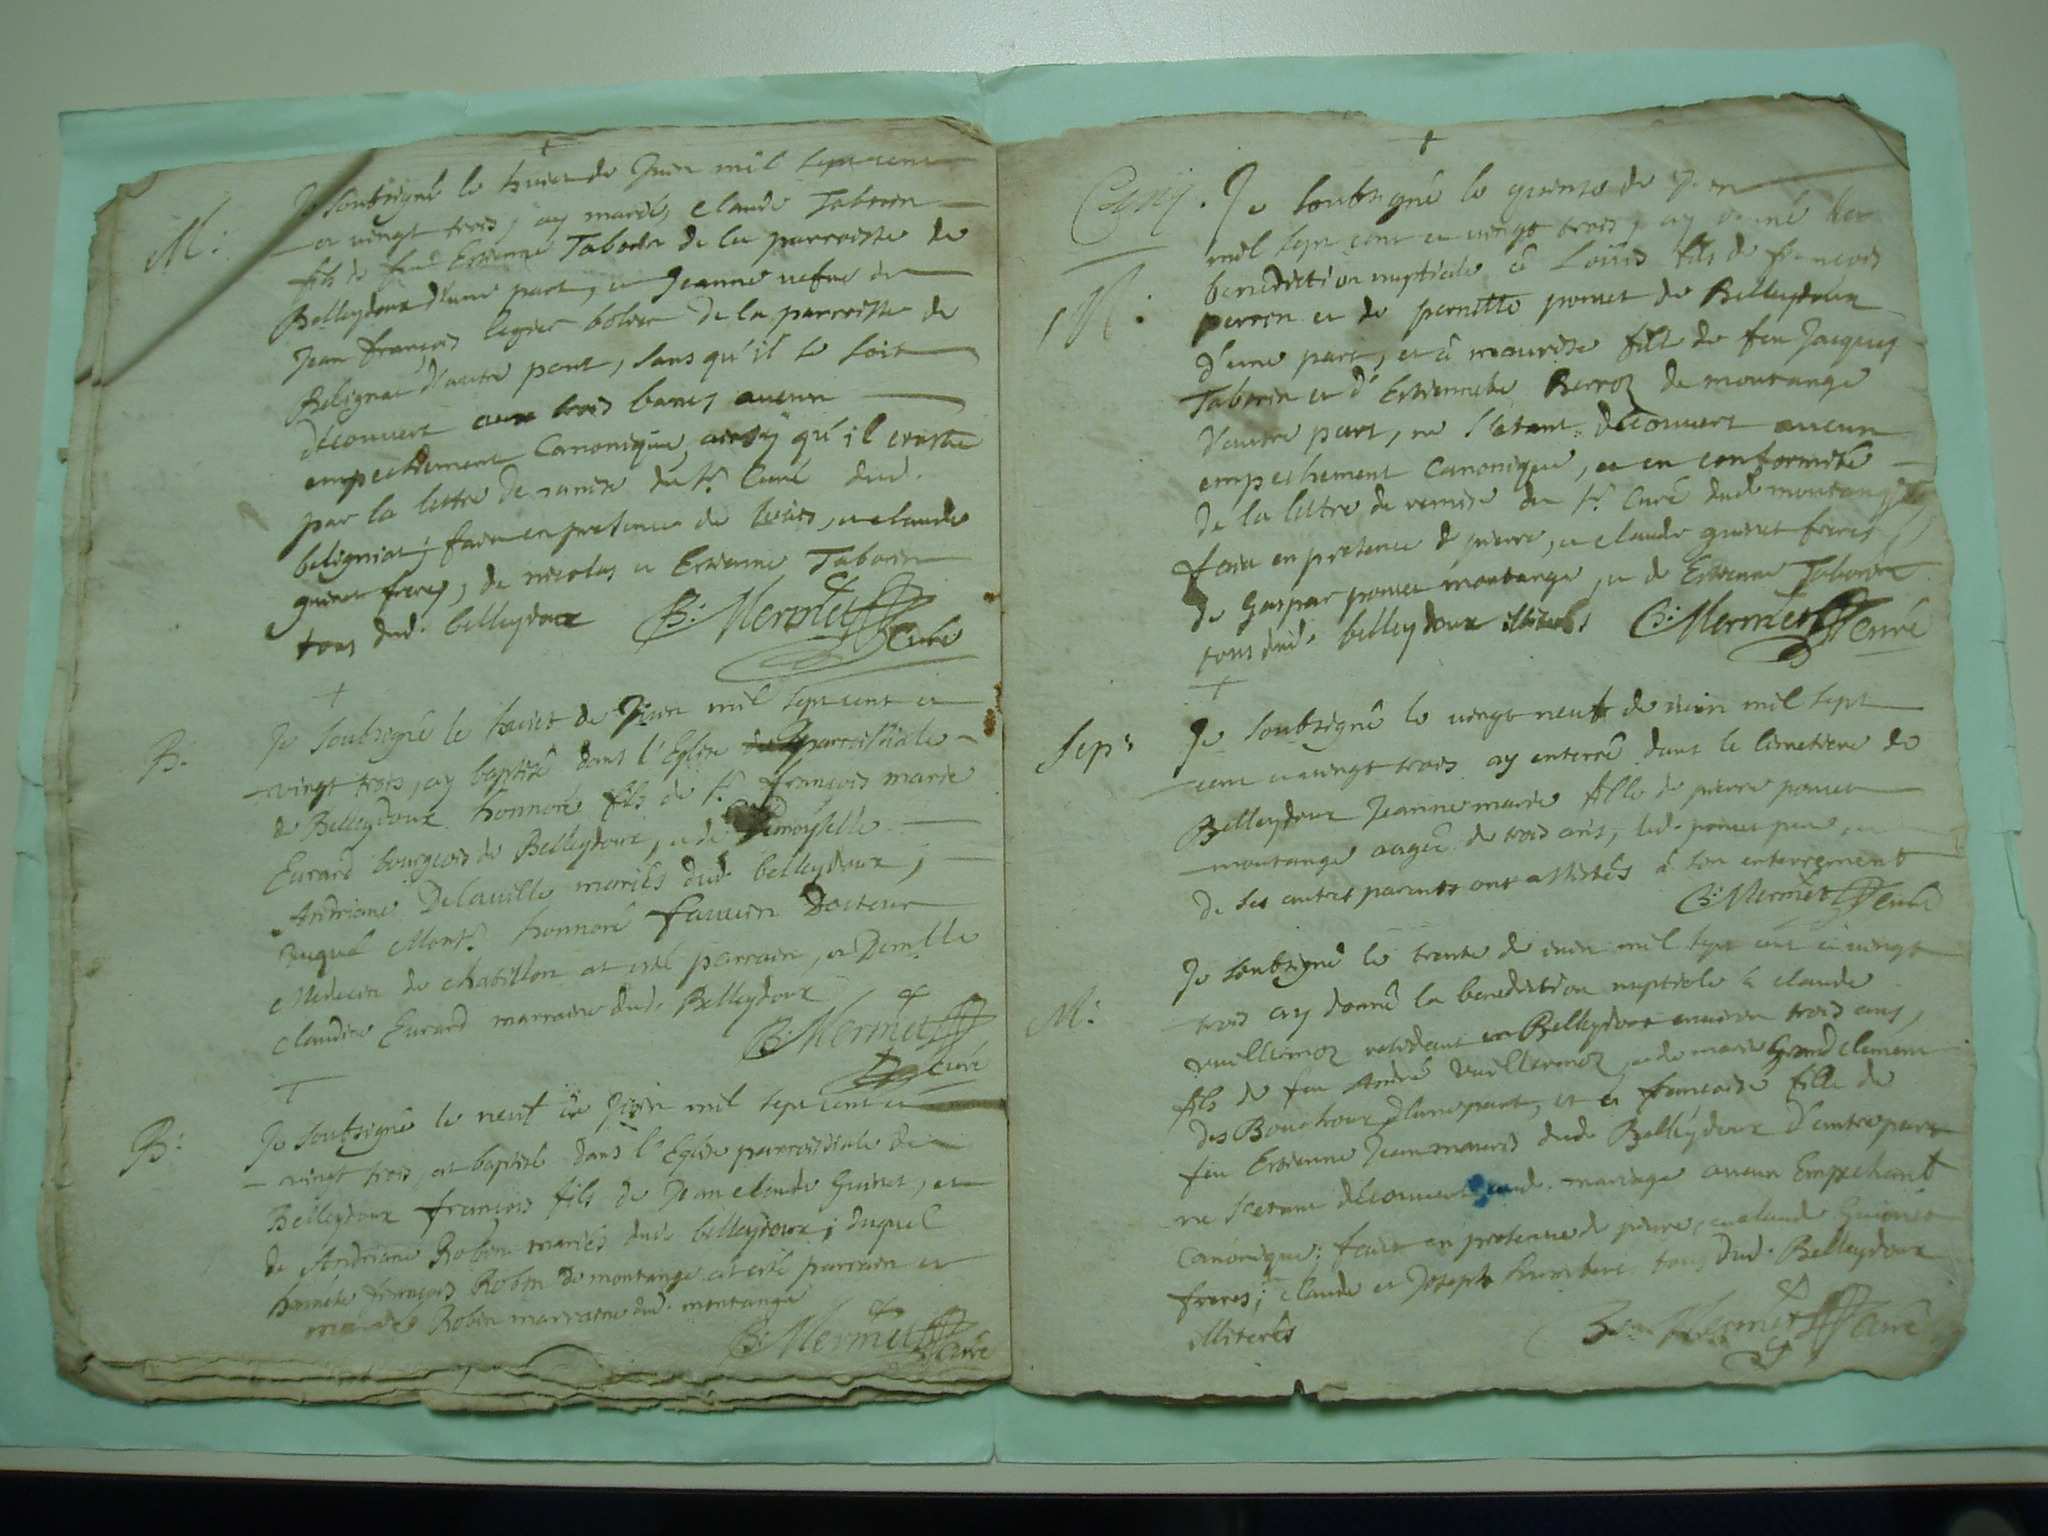 Je soubsigné le huict de Juin mil sept cent
M: et vingt trois, ay marié, claude Taborin
fils de feu Estienne Taborin de la parroisse de
Belleydoux d'une part, et Jeanne vefve de
Jean françois de la parroisse de
Belignat d'autre part, sans qu'il se soit
découvert aux trois bancs aucun
empechement Canonique, ainsy qu'il conste
par la lettre de remise du sr. Curé dud.
beligniat; fait en presence de Louis, et claude
guinet freres, de nicolas et Estienne Taborin
tous dud. belleydoux B: Mermet
Curé
B: Je soubsigné le huict de Juin mil sept cent et
vingt trois, ay baptisé dans l'Eglise parroissiale
de Belleydoux honnoré fils de sr. françois marie
Eurard bourgeois de Belleydoux, et de Demoyselle
Andriane Delaville mariés dud. belleydoux;
duquel Monsr. honnoré favvien Docteur
Medecin de chatillon at esté parrain, et Demlle
claudine Eurard marraine dud. Belleydoux
B: Mermet
Curé
B: Je soubsigné le neuf de Juin mil sept cent et
vingt trois, at baptisé dans l'Eglise parroissiale de
Belleydoux françois fils de Jean claude Guinet, et
de Andriane Robin mariés dud. belleydoux; duquel
honnête françois Robin de montange at esté parrain et
Robin marraine dud. montange
B: Mermet
Curé
Je soubsigné le quinse de Juin
mil sept cent et vingt trois, ay donné la
benediction nuptiale à Loüis fils de françois
M: perrin et de pernette ponset de Belleydoux
d'une part, et à mourise fille de feu Jacques
Taborin et d'Estiennete Berroz de montange
d'autre part, ne s'étant découvert aucun
empechement Canonique, et en conformité
de la lettre de remise du sr. Curé dud. montange
fait en presence de pierre, et claude guinet freres
de Gaspar ponset montange, et de Estienne Taborin
tous dud. belleydoux illiterés B: Mermet curé
Sep: Je soubsigné le vingt neuf de iuin mil sept
cent et vingt trois ay enterré dans le cimetiere de
Belleydoux Jeanne marie fille de pierre ponset
montange aagée de trois ans, led. ponset pere, et
de ses autres parents ont assistés à son enterrement
B: Mermet Curé
Je soubsigné le trente de iuin mil sept cent et vingt
M: trois ay donné la benediction nuptiale à claude
vuillermoz residant en Belleydoux environ trois ans,
fils de feu André vuillermoz, et de marie Grand clement
des Bouchoux d'une part, et à françoise fille de
feu Estienne Jeanmouris dud. Belleydoux d'autre part
ne s'estant découvert aud. mariage aucun Empechant
Canonique; fait en presence de pierre, et claude Guinet
freres; claude et Joseph humbert tous dud. Belleydoux
illiterés B: Mermet curé